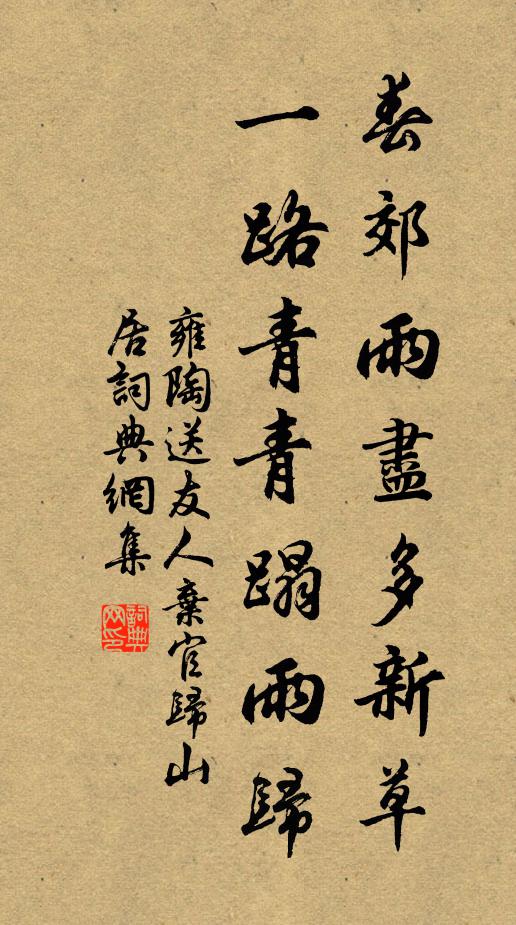 春郊雨盡多新草
一路青青蹋雨歸
雍陶送友人棄官歸山
居詞典網集
詞典網印